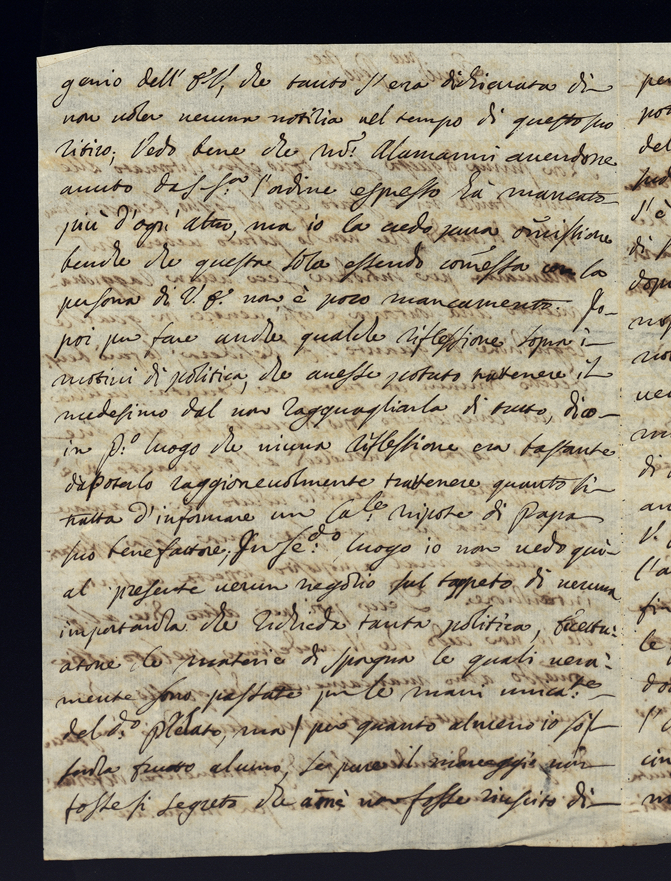 genio dell' E. V., che tanto s'era dichiarata di
non voler veruna notizia nel tempo di questo suo
ritiro; Vedo bene che m.r Alamanni avendone
avuto da S. S.ta l'ordine espresso hà mancato
più d'ogn' altro, ma io la credo pura omissione
benche che questa sola essendo comessa con la
persona di V. E. non è poco mancamento. Io
poi per fare anche qualche riflessione sopra i
motivi di politica, che avesse potuto rattenere il
medesimo dal non ragguagliarla di tutto, dico
in p.o luogo che niuna riflessione era bastante
da poterlo raggionevolmente trattenere quanto si
tratta d'informare un Ca.le nipote di Papa
suo benefattore; In se.do luogo io non vedo qui
al presente verun negozio sul tappeto di veruna
importanza che richieda tanta politica, eccettu:
atone le materie di Spagna le quali vera:
mente sono passate per le mani unica.te
del d.o Prelato, ma / per quanto almeno io so /
senza frutto alcuno, se pure il maneggio non
fosse si segreto che à me non fosse riuscito di